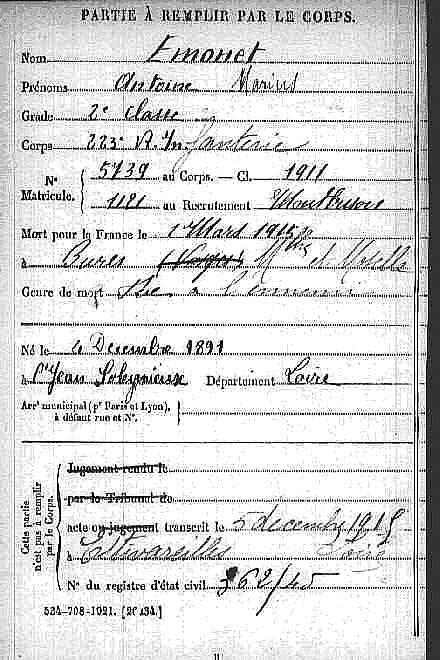 PARTIE À REMPLIR PAR LE CORPS.
Nom Emonet
Prénoms Antoine Marius
Grade 2e classe
Corps 223e R. Infanterie
Nos Matricule. 5739 au Corps. — Cl. 1911
1121 au Recrutement Montbrison
Mort pour le France le 1 Mars 1915
à Bures (Vosges) Mthe et Moselle
Genre de mort Tué à l'ennemi
Né le 4 Decembre 1891
à St Jean Soleymieux Département Loire
Arrt municipal (pr Paris et Lyon), à défaut rue et No.
Cette partie n'est pas à remplir par le Corps.
Jugement rendu le
par le Tribunal de
acte ou jugement transcrit le 5 decembre 1915
à Estivareilles Loire
No du registre d'état civil 362/45
534-708-1921. [26434.]